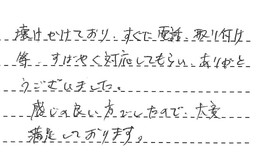 壊れかけており、すぐに電話、取り付け
等、すばやく対応してもらい、ありがと
うございました。
感じの良い方でしたので、大変
満足しております。